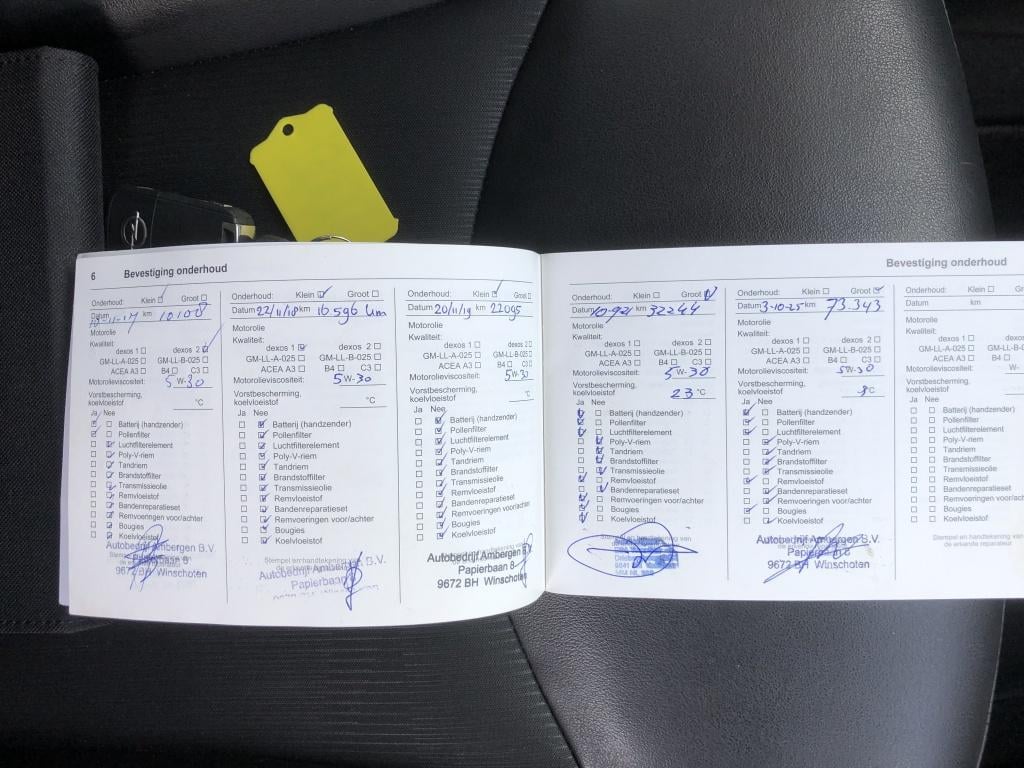 6 Bevestiging onderhoud
Onderhoud: Klein Groot
Datum km 10108
Motorolie
Kwaliteit:
dexos 1 dexos 2
GM-LL-A-025 GM-LL-B-025
ACEA A3 B4 C3
Motorolieviscositeit: 5W-30
Vorstbescherming,
koelvloeistof °C
Ja Nee
Batterij (handzender)
Pollenfilter
Luchtfilterelement
Poly-V-riem
Tandriem
Brandstoffilter
Transmissieolie
Remvloeistof
Bandenreparatieset
Remvoeringen voor/achter
Bougies
Koelvloeistof
Autobedrijf Ambergen B.V.
Papierbaan 8
9672 BH Winschoten
Onderhoud: Klein Groot
Datum 22/11/18 km 16596 km
Motorolie
Kwaliteit:
dexos 1 dexos 2
GM-LL-A-025 GM-LL-B-025
ACEA A3 B4 C3
Motorolieviscositeit: 5W-30
Vorstbescherming,
koelvloeistof °C
Ja Nee
Batterij (handzender)
Pollenfilter
Luchtfilterelement
Poly-V-riem
Tandriem
Brandstoffilter
Transmissieolie
Remvloeistof
Bandenreparatieset
Remvoeringen voor/achter
Bougies
Koelvloeistof
Stempel en handtekening van
de erkende reparateur
Autobedrijf Ambergen B.V.
Papierbaan
Onderhoud: Klein Groot
Datum 20/11/19 km 22095
Motorolie
Kwaliteit:
dexos 1 dexos 2
GM-LL-A-025 GM-LL-B-025
ACEA A3 B4 C3
Motorolieviscositeit: 5W-30
Vorstbescherming,
koelvloeistof °C
Ja Nee
Batterij (handzender)
Pollenfilter
Luchtfilterelement
Poly-V-riem
Tandriem
Brandstoffilter
Transmissieolie
Remvloeistof
Bandenreparatieset
Remvoeringen voor/achter
Bougies
Koelvloeistof
Autobedrijf Ambergen B.V.
Papierbaan 8
9672 BH Winschoten
Bevestiging onderhoud
Onderhoud: Klein Groot
Datum km 32244
Motorolie
Kwaliteit:
dexos 1 dexos 2
GM-LL-A-025 GM-LL-B-025
ACEA A3 B4 C3
Motorolieviscositeit: 5W-30
Vorstbescherming,
koelvloeistof 23 °C
Ja Nee
Batterij (handzender)
Pollenfilter
Luchtfilterelement
Poly-V-riem
Tandriem
Brandstoffilter
Transmissieolie
Remvloeistof
Bandenreparatieset
Remvoeringen voor/achter
Bougies
Koelvloeistof
Stempel en handtekening van
Onderhoud: Klein Groot
Datum 3-10-25 km 73.343
Motorolie
Kwaliteit:
dexos 1 dexos 2
GM-LL-A-025 GM-LL-B-025
ACEA A3 B4 C3
Motorolieviscositeit: 5W-30
Vorstbescherming,
koelvloeistof °C
Ja Nee
Batterij (handzender)
Pollenfilter
Luchtfilterelement
Poly-V-riem
Tandriem
Brandstoffilter
Transmissieolie
Remvloeistof
Bandenreparatieset
Remvoeringen voor/achter
Bougies
Koelvloeistof
Autobedrijf Ambergen B.V.
Papierbaan 8
9672 BH Winschoten
Onderhoud: Klein
Datum km
Motorolie
Kwaliteit:
dexos 1 de
GM-LL-A-025 GM-L
ACEA A3 B4
Motorolieviscositeit: W-
Vorstbescherming,
koelvloeistof
Ja Nee
Batterij (handzender)
Pollenfilter
Luchtfilterelement
Poly-V-riem
Tandriem
Brandstoffilter
Transmissieolie
Remvloeistof
Bandenreparatieset
Remvoeringen voor/achter
Bougies
Koelvloeistof
Stempel en handtekening van
de erkende reparateur